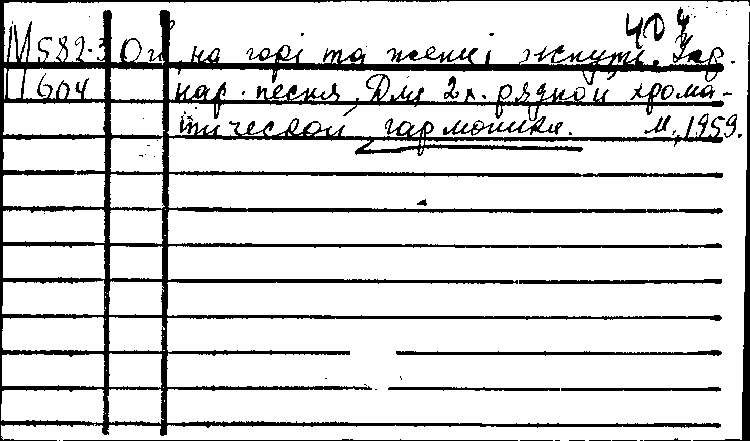 404
М582.3 Ой на горі та женці жнуть. Укр.
П604 нар. песня. Для 2х. рядной хрома-
тической гармоники. М., 1959.